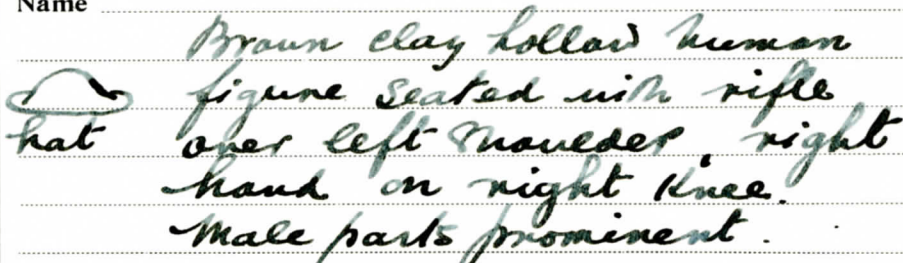 Name
Brown clay hollow human
figure seated with rifle
hat over left shoulder, right
hand on right knee.
Male parts prominent.